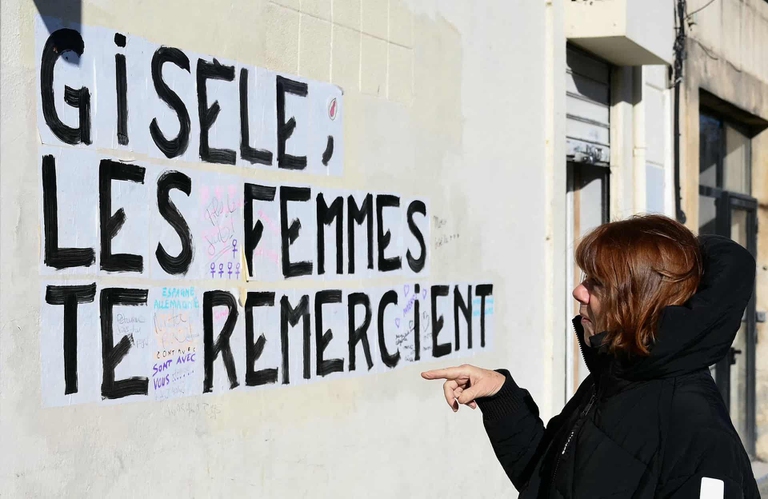 GiSÈLE,
LES FEMMES
TE REMERCiENT
ESPAGNE
ALLEMAGNE
SONT AVEC
VOUS....